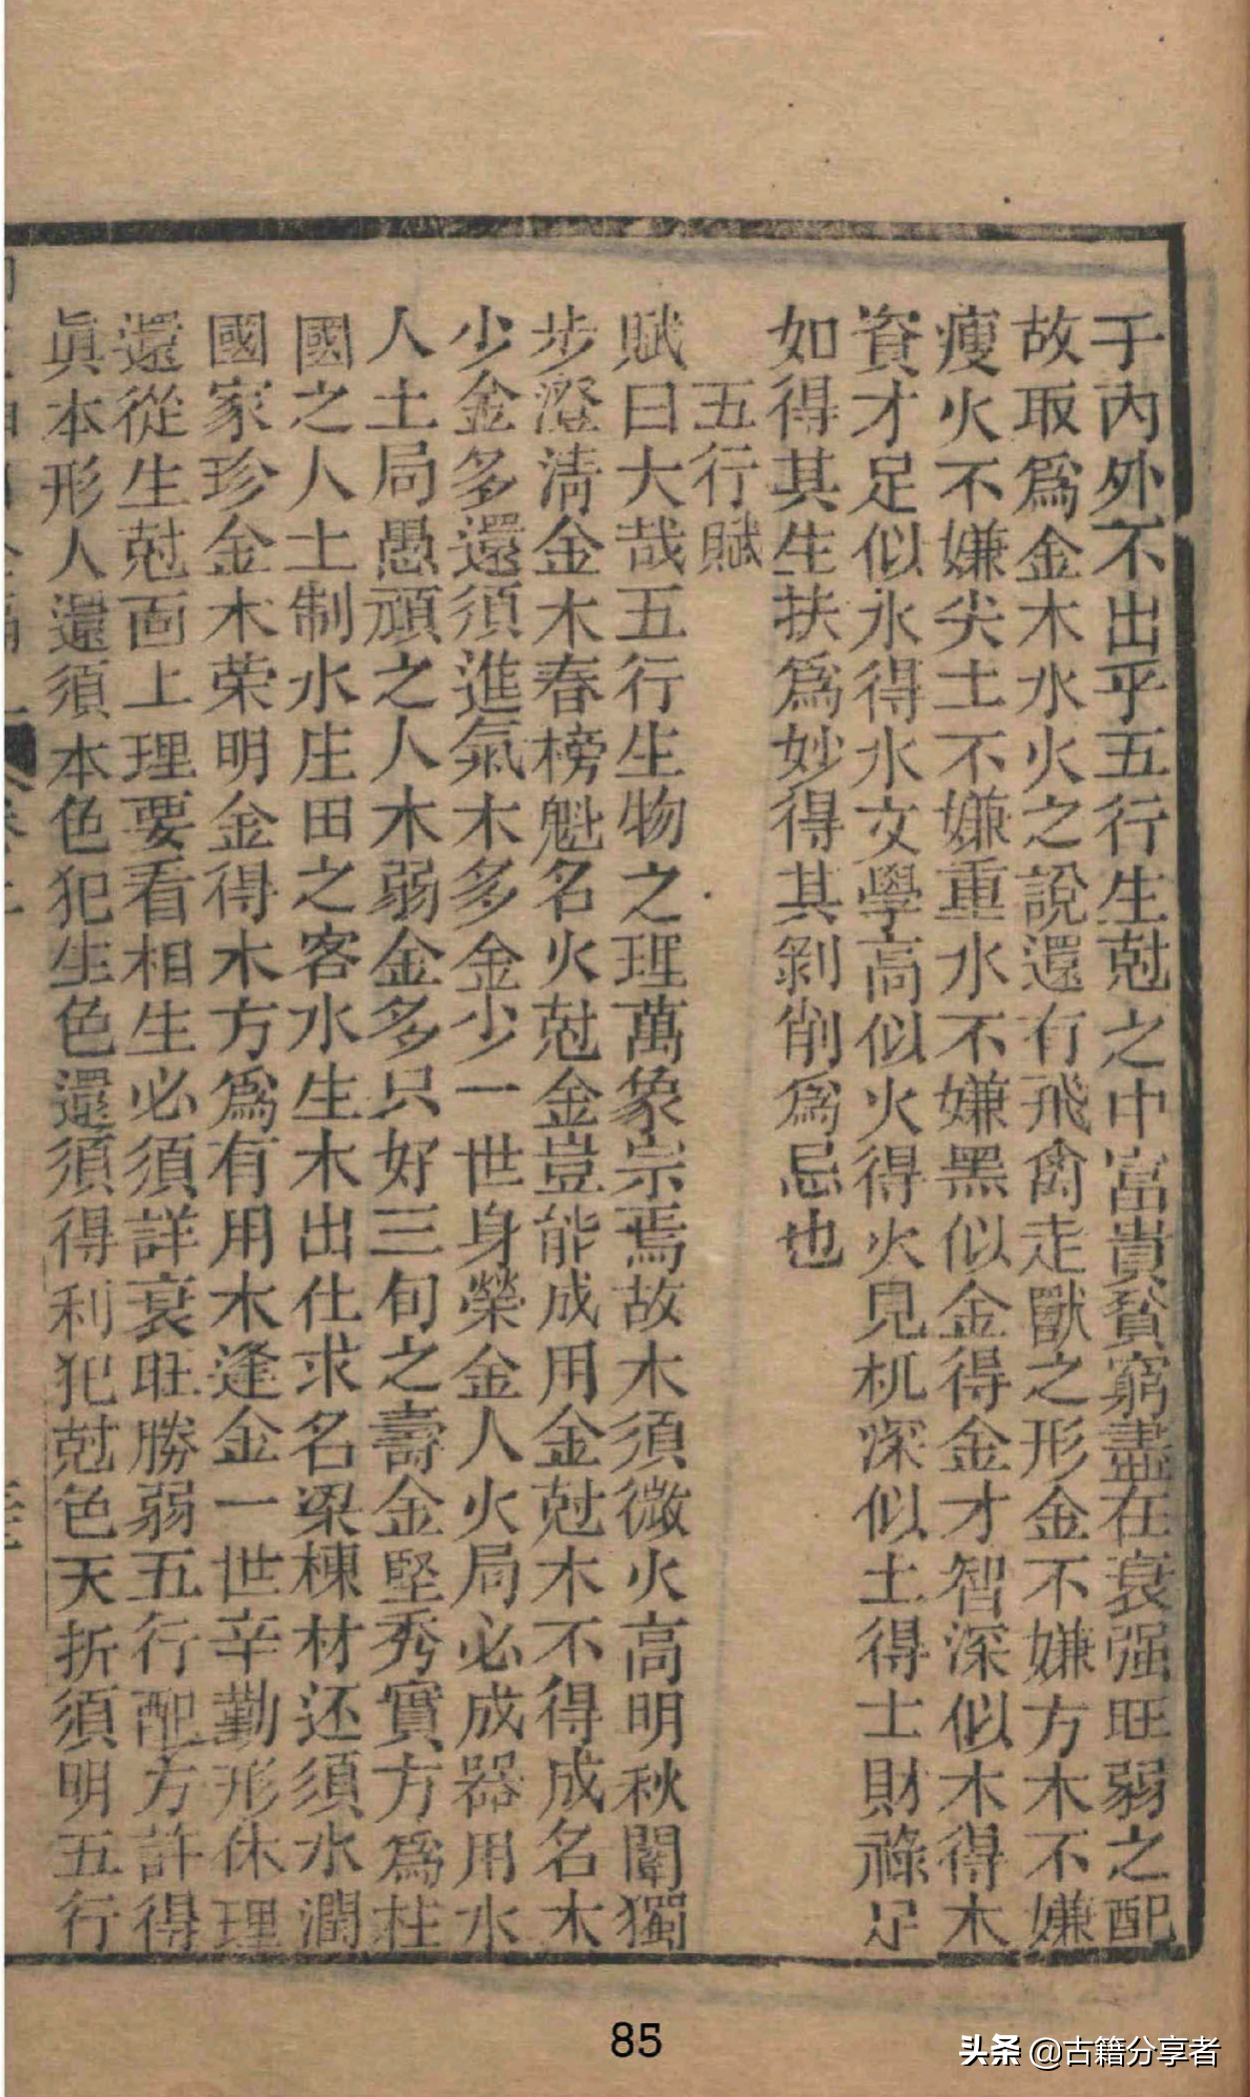 于內外不出乎五行生尅之中富貴貧窮盡在衰强旺弱之配
故取爲金木水火之說還有飛禽走獸之形金不嫌方木不嫌
瘦火不嫌尖土不嫌重水不嫌黑似金得金才智深似木得木
資才足似水得水文學高似火得火見机深似土得土財祿足
如得其生扶爲妙得其剝削爲忌也
五行賦
賦曰大哉五行生物之理萬象宗焉故木須微火高明秋闈獨
步澄清金木春榜魁名火尅金豈能成用金尅木不得成名木
少金多還須進氣木多金少一世身榮金人火局必成器用水
人土局愚頑之人木弱金多只好三旬之壽金堅秀實方爲柱
國之人土制水庄田之客水生木出仕求名梁棟材还須水潤
國家珍金木荣明金得木方爲有用木逢金一世辛勤形休理
還從生尅面上理要看相生必須詳衰旺勝弱五行配方許得
眞本形人還須本色犯生色還須得利犯尅色夭折須明五行
85
头条 @古籍分享者